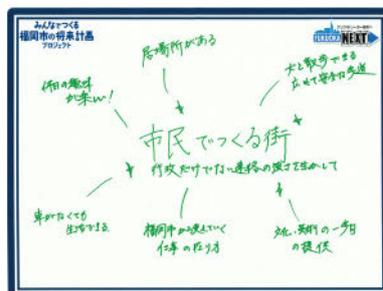 みんなでつくる
福岡市の将来計画
プロジェクト
FUKUOKA
NEXT
居場所がある
休日の趣味
が楽しい!
犬と散歩できる
広めで安全な歩道
市民でつくる街
行政だけでない連絡の強さを生かして
車がなくても
生活できる
福岡市から
仕事の在り方
文化、芸術の一歩目
の提供